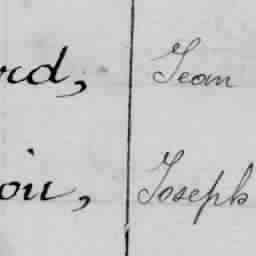 rd, Jean
ou, Joseph